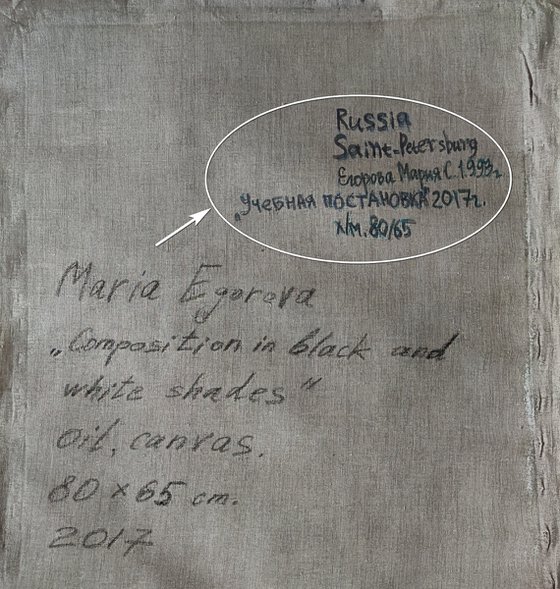 Russia
Saint-Petersburg
Егорова Мария С. 1993г.
„Учебная постановка" 2017г.
х/м. 80/65
Maria Egorova
„Composition in black and
white shades"
oil, canvas.
80 × 65 cm.
2017